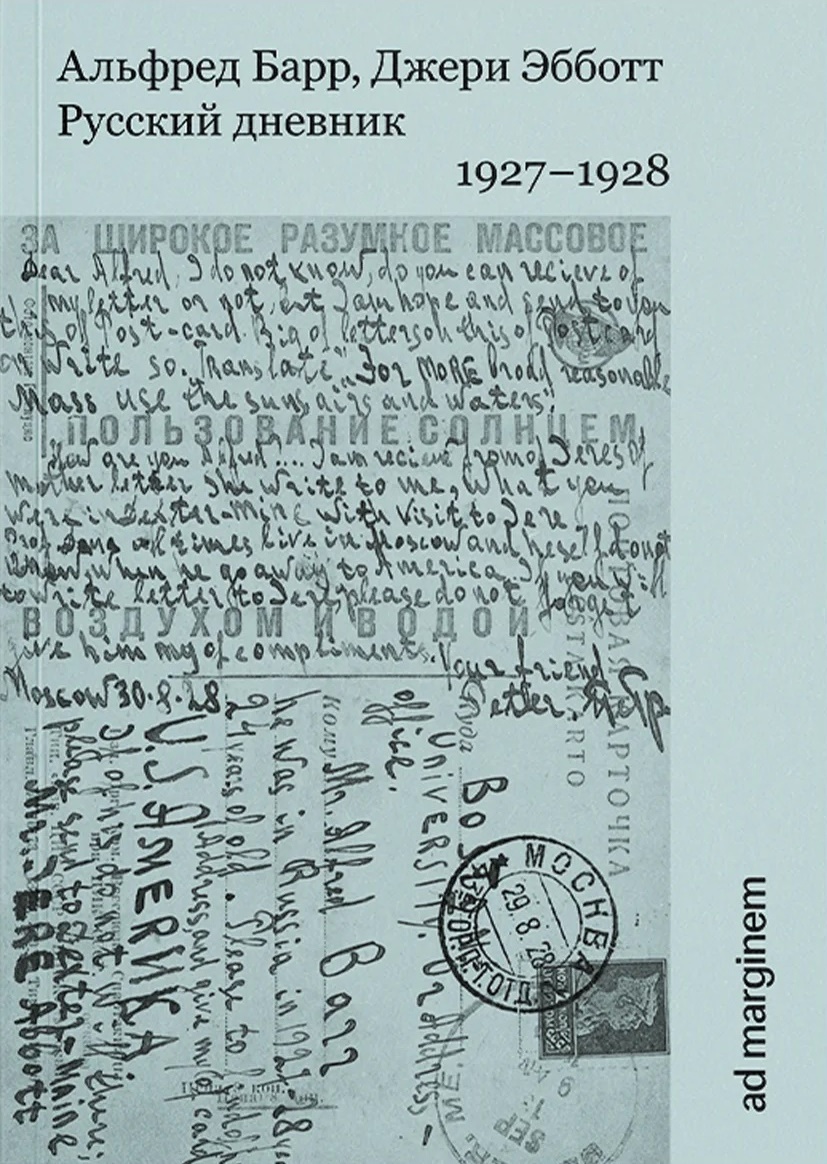 Альфред Барр, Джери Эбботт
Русский дневник
1927–1928
ЗА ШИРОКОЕ РАЗУМНОЕ МАССОВОЕ
Dear Alfred, I do not know, do you can recieve of
my letter or not, but I am hope and send to you
this of Post-card. Big of letters on this of Postcard
or write so. Translate: "For MORE broad reasonable
Mass use the suns, airs and waters".
ПОЛЬЗОВАНИЕ СОЛНЦЕМ
How are you Alfred?... I am recieve from of Jeres of
mother letter she write to me, what you
were in Dexter-Maine with visit to Jere.
all times live in Moscow and hese I do not
know, when he go away to America. If you will
to write letter to Jere, please do not forget
ВОЗДУХОМ И ВОДОЙ
give him my of compliments. Your friend
Moscow 30.8.28 Petter
ПОЧТОВАЯ КАРТОЧКА
Куда
University. Or address —
office.
Кому Mr. Alfred Barr
he was in Russia in 1927-28 ye
24 years of old. Please to
Address and give my of card
U.S. AМЕРИКА
If of his do not will there,
please send to Dexter-Maine
Mr. JERE Abbott
МОСКВА
29.8.28
SEP
ad marginem